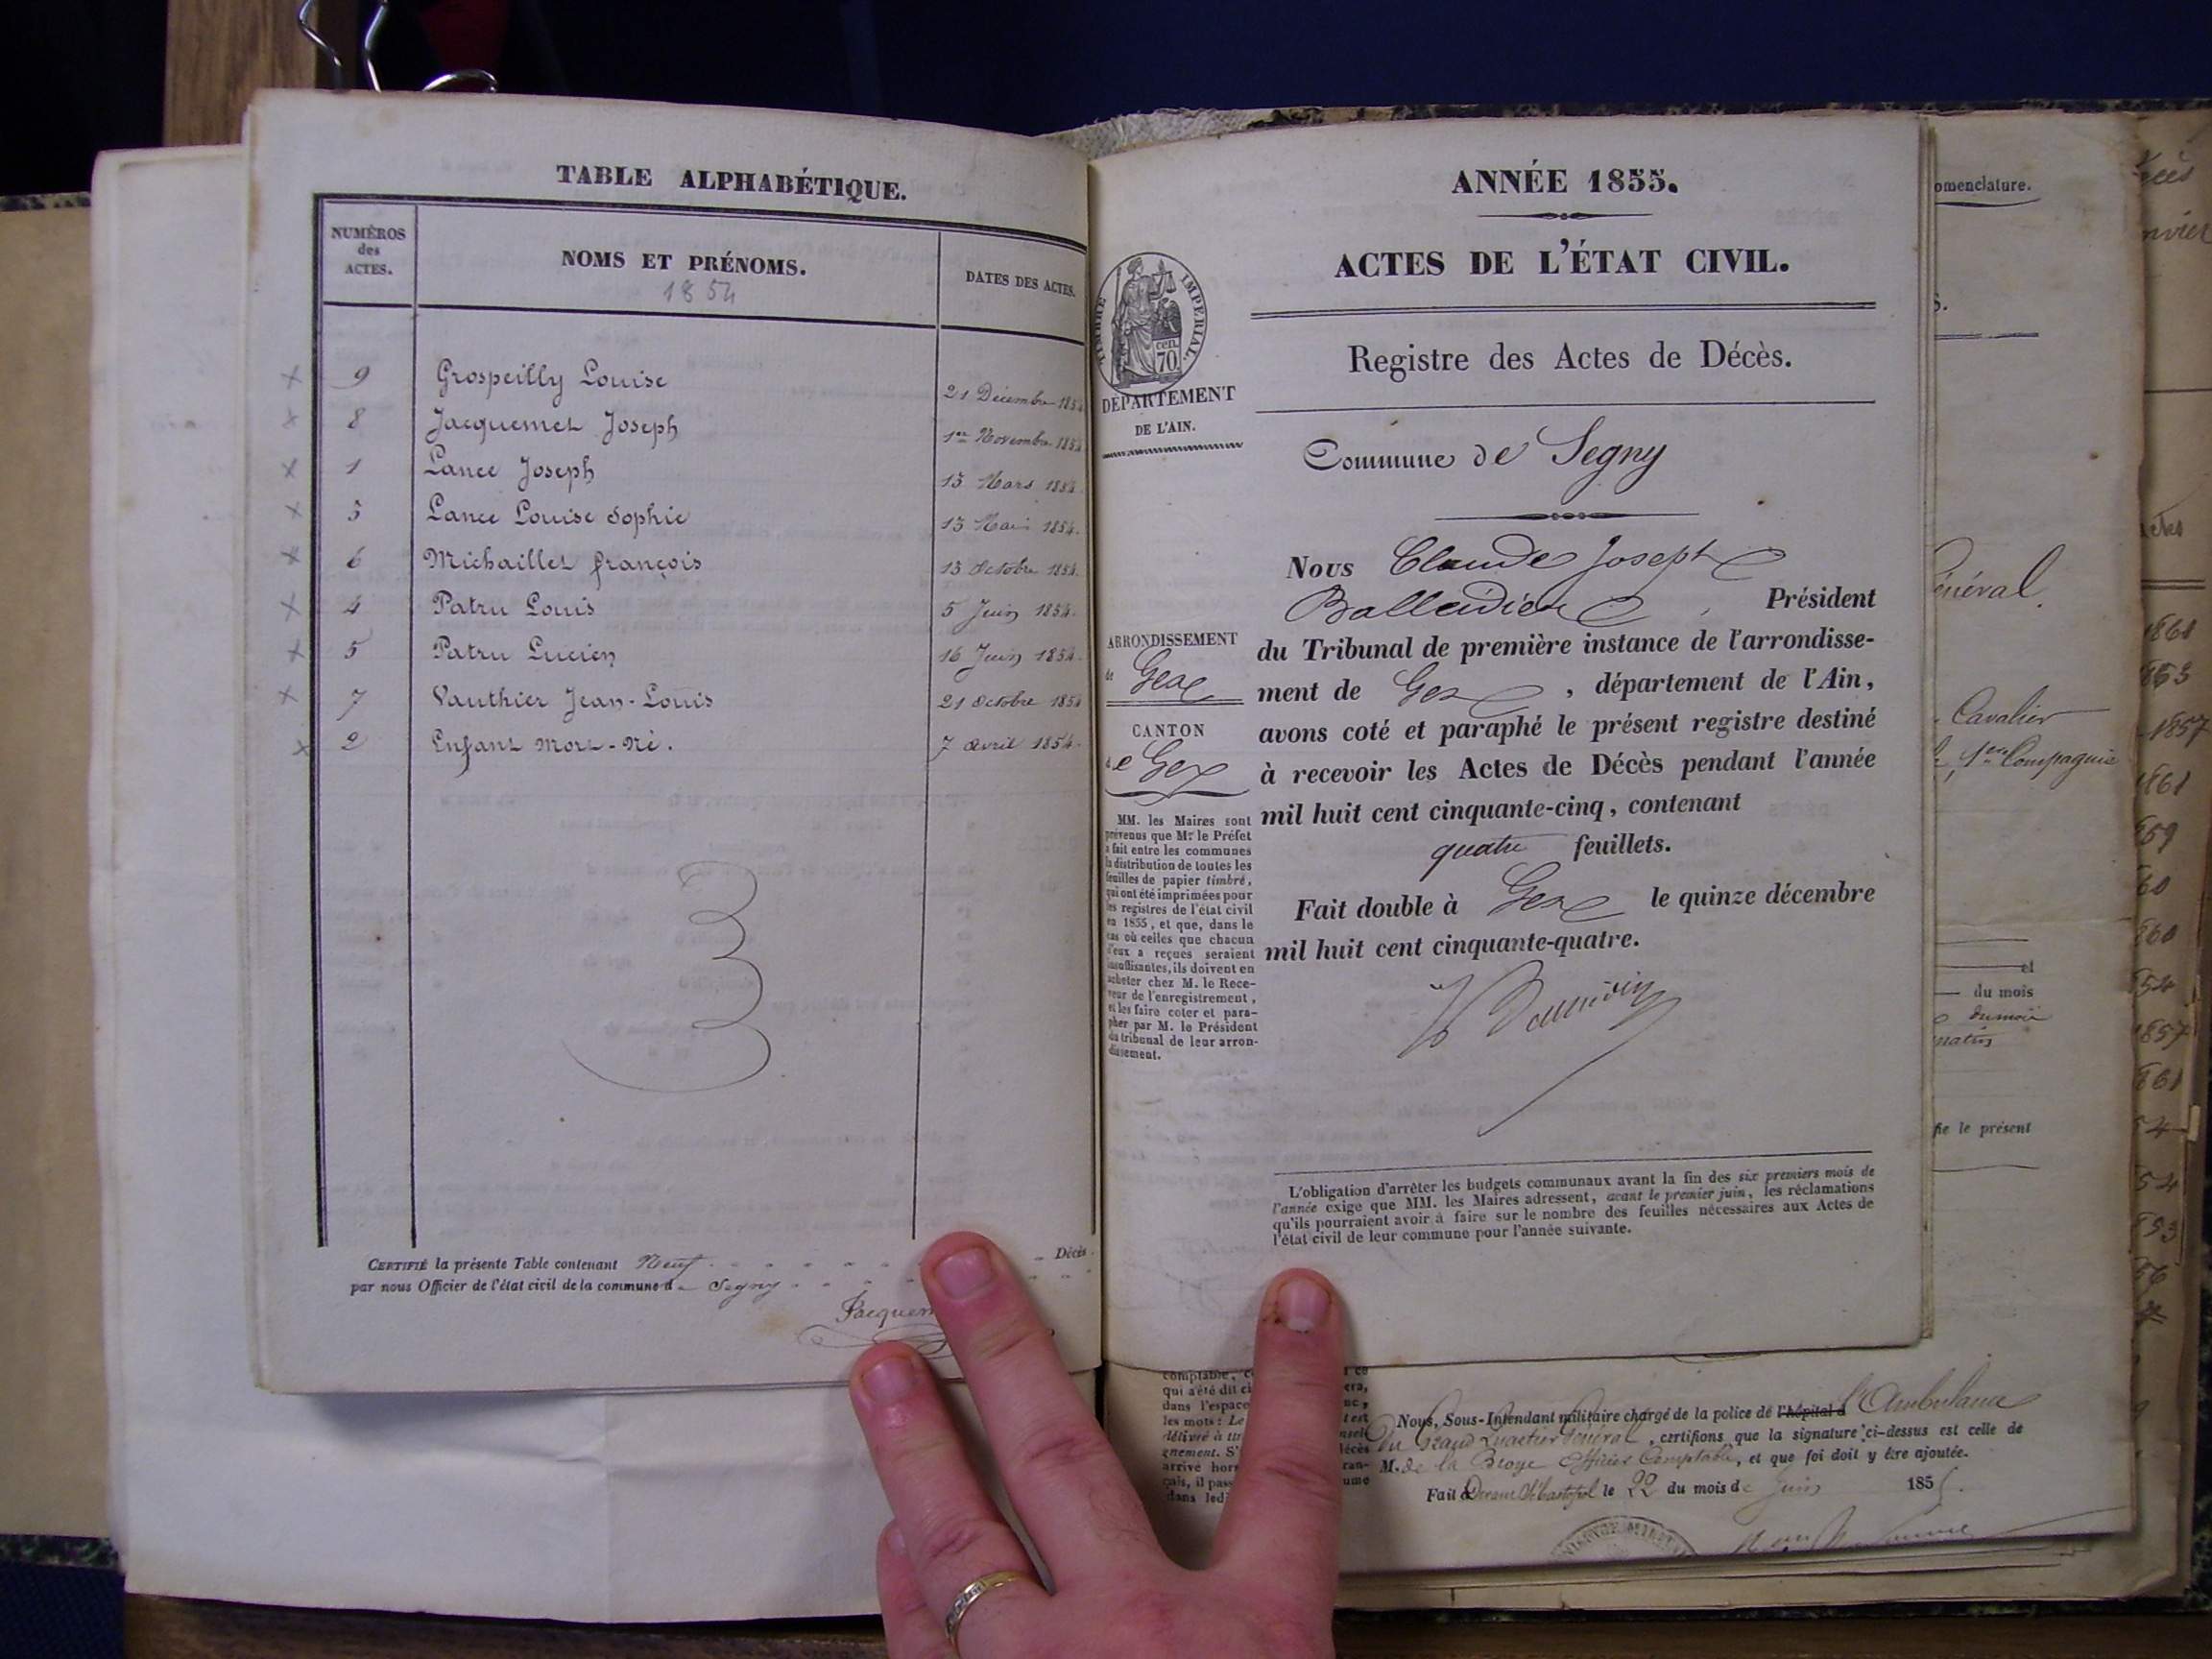 TABLE ALPHABÉTIQUE.
NUMÉROS
des
ACTES.
NOMS ET PRÉNOMS.
1854
DATES DES ACTES.
9 Grospeilly Louise 21 Décembre 1854
8 Jacquemet Joseph 1er Novembre 1854
1 Lance Joseph 13 Mars 1854
3 Lance Louise Sophie 13 Mai 1854.
6 Michaillet françois 13 Octobre 1854.
4 Patru Louis 5 Juin 1854.
5 Patru Lucien 16 Juin 1854.
7 Vauthier Jean-Louis 21 Octobre 1854
2 Enfant Mort-Né. 7 Avril 1854.
CERTIFIÉ la présente Table contenant Neuf Décès.
par nous Officier de l'état civil de la commune de Segny
Jacquem
ANNÉE 1855.
ACTES DE L'ÉTAT CIVIL.
TIMBRE IMPÉRIAL.
cen.
70.
Registre des Actes de Décès.
DÉPARTEMENT
DE L'AIN.
Commune de Segny
Nous Claude Joseph
Balleidier, Président
ARRONDISSEMENT
de Gex
du Tribunal de première instance de l'arrondisse-
ment de Gex, département de l'Ain,
CANTON
de Gex
avons coté et paraphé le présent registre destiné
à recevoir les Actes de Décès pendant l'année
mil huit cent cinquante-cinq, contenant
quatre feuillets.
Fait double à Gex le quinze décembre
mil huit cent cinquante-quatre.
MM. les Maires sont
prévenus que Mr le Préfet
a fait entre les communes
la distribution de toutes les
feuilles de papier timbré,
qui ont été imprimées pour
les registres de l'état civil
en 1855, et que, dans le
cas où celles que chacun
d'eux a reçues seraient
insuffisantes, ils doivent en
acheter chez M. le Rece-
veur de l'enregistrement,
et les faire coter et para-
pher par M. le Président
du tribunal de leur arron-
dissement.
L'obligation d'arrêter les budgets communaux avant la fin des six premiers mois de
l'année exige que MM. les Maires adressent, avant le premier juin, les réclamations
qu'ils pourraient avoir à faire sur le nombre des feuilles nécessaires aux Actes de
l'état civil de leur commune pour l'année suivante.
omenclature.
énéral.
Cavalier
1re Compagnie
et
du mois
du mois
fie le présent
1861
1853
1857
1861
comptable,
qui a été dit
dans l'espace
les mots: Le
délivré à
gnement. S'
arrivé hors
çais, il pas
dans led
Nous, Sous-Intendant militaire chargé de la police de l'hôpital d l'Ambulance
du Grand Quartier Général, certifions que la signature ci-dessus est celle de
M. de la Broye Officier Comptable, et que foi doit y être ajoutée.
Fait à Devant Sébastopol le 22 du mois de Juin 1855.